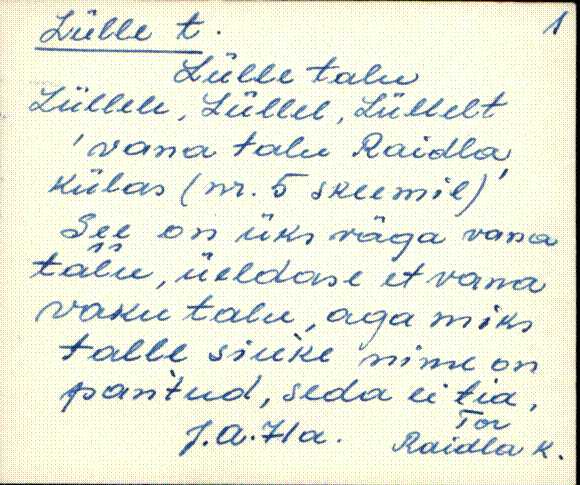 Lülle t.
1
Lülle talu
Lüllele, Lüllel, Lüllelt
'vana talu Raidla
külas (nr. 5 skeemil)'
See on üks väga vana
talu, üeldase et vana
vaku talu, aga miks
talle siuke nime on
pantud, seda ei tia.
J.A. Ha.
Tor
Raidla k.